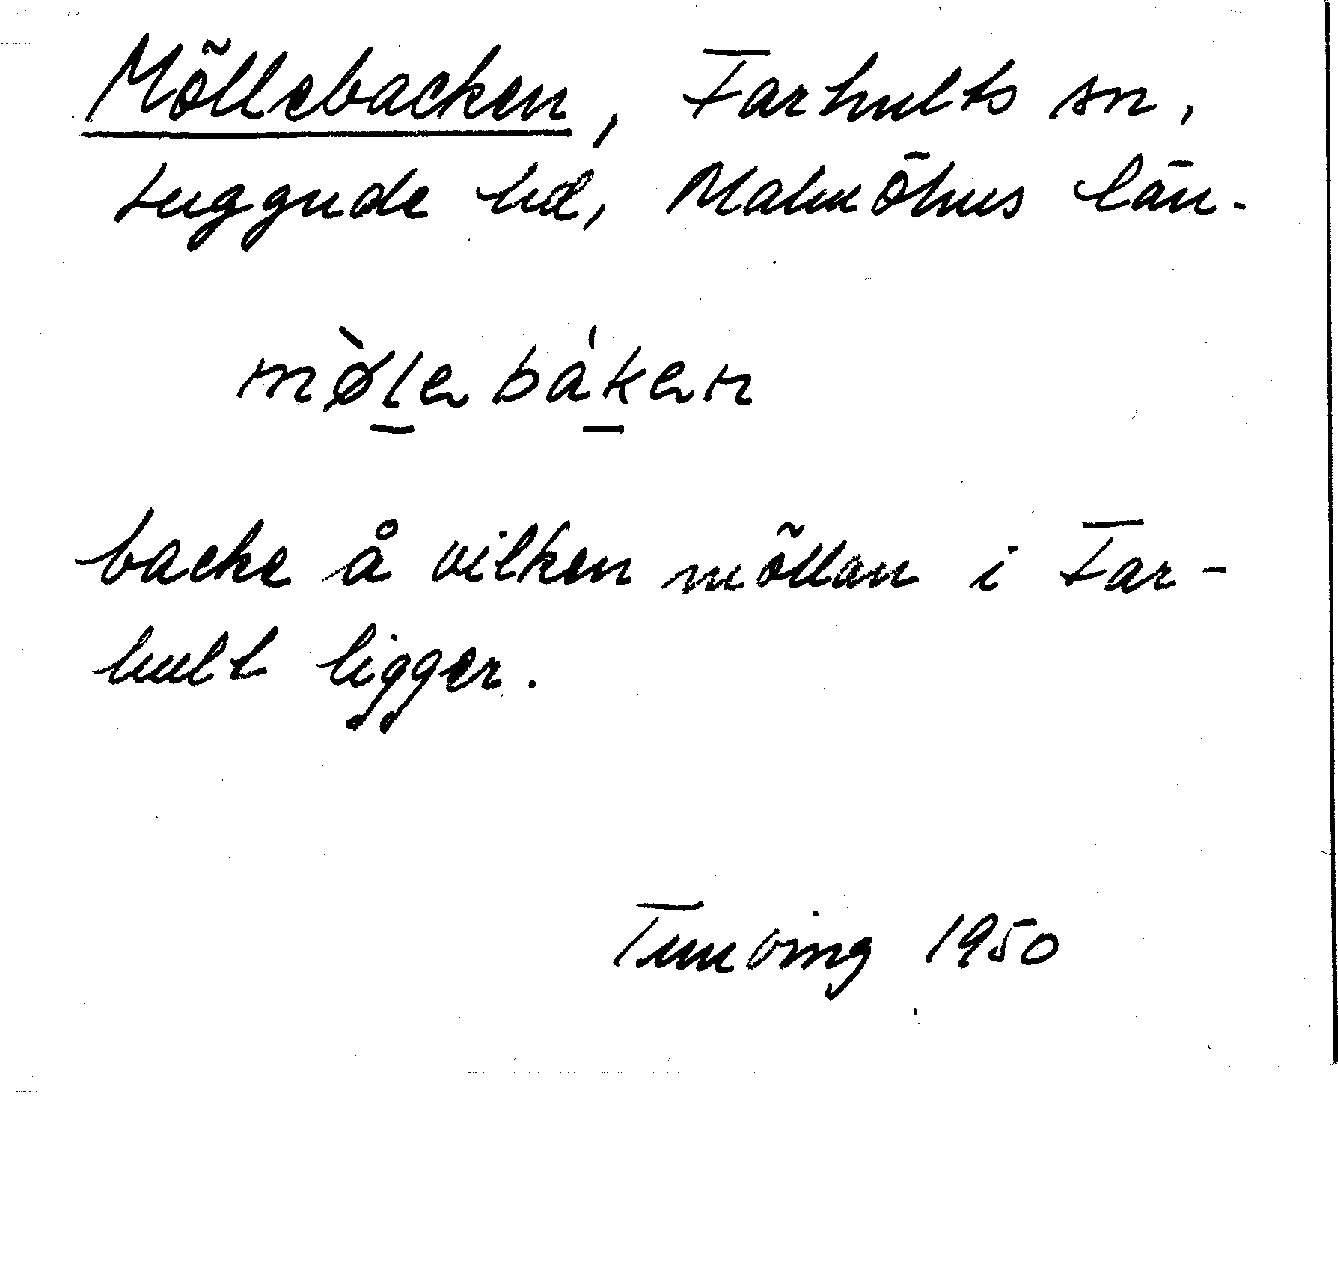 Möllebacken, Farhults sn,
Luggude hd, Malmöhus län.
mø̀l̠e bák̠en
backe å vilken möllan i Far-
hult ligger.
Tunving 1950